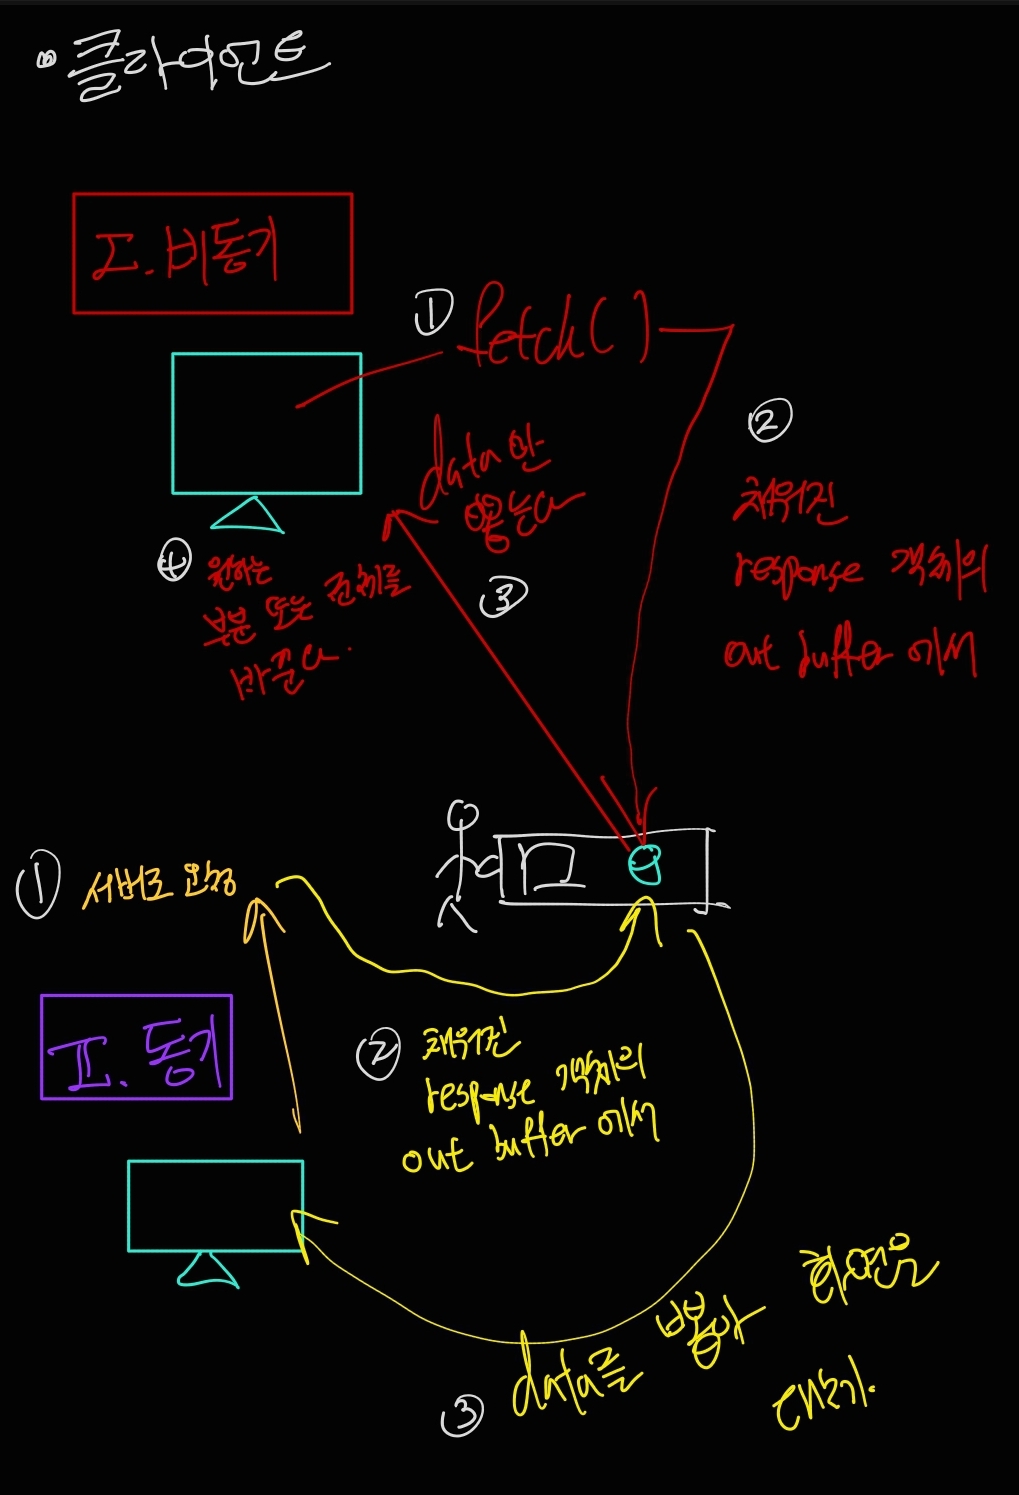 클라이언트
I. 비동기
① fetch()
data만
뽑는다
②
채워진
response 객체의
out buffer 에서
③
④ 원하는
부분 또는 전체를
바꾼다.
① 서버로 요청
II. 동기
② 채워진
response 객체의
out buffer 에서
③ data를 뽑아 화면을
대체.